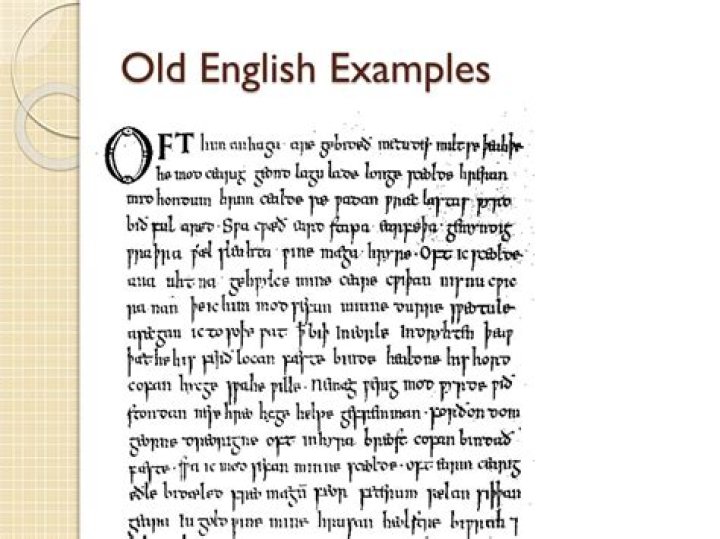 Old English Examples
OFT him anhaga are gebideð metudes miltse þeah þe
he mod cearig geond lagu lade longe sceolde hreran
mid hondum hrim cealde sæ ƿadan ƿræc lastas ƿyrd
bið ful aræd. Sƿa cƿæð eard stapa earfeþa gemyndig
ƿraþra ƿæl sleahta ƿine mæga hryre. Oft ic sceolde
ana uhtna gehƿylce mine ceare cƿiþan nis nu cƿic
ra nan þe ic him mod sefan minne durre sƿeotule
asecgan ic to soþe ƿat ꝥ biþ in eorle indryhten þeaƿ
þæt he his ferð locan fæste binde healdne his hord
cofan hycge sƿa he ƿille. Ne mæg ƿerig mod ƿyrde ƿið
stondan ne se hreo hyge helpe gefremman. forðon dom
georne dreorigne oft in hyra breost cofan bindað
fæste. sƿa ic mod sefan minne sceolde. oft earm cearig
eðle bidæled freo mægum feor feterum sælan siþþan
geara iu gold ƿine mine hrusan heolstre biƿrah ⁊